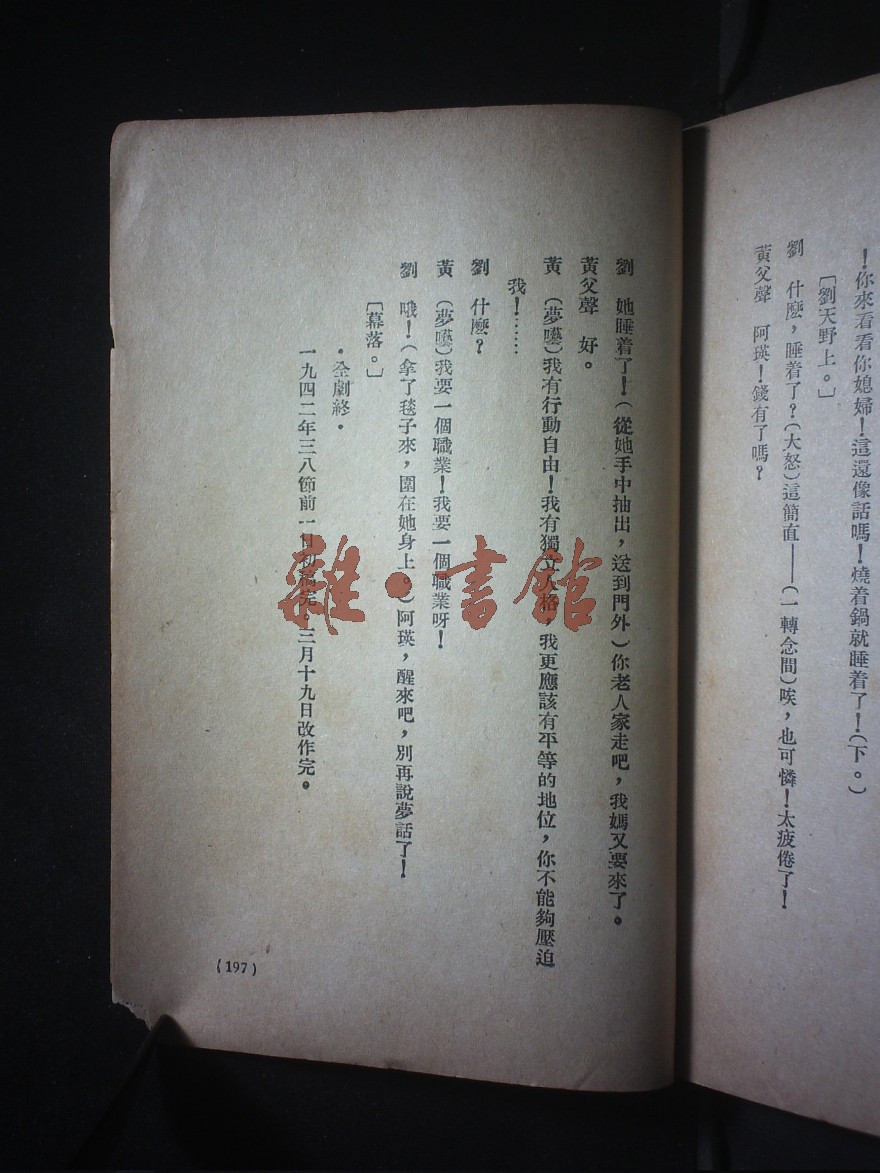 ！你來看看你媳婦！這還像話嗎！燒着鍋就睡着了！(下。)
〔劉天野上。〕
劉　什麼，睡着了？(大怒)這簡直——(一轉念間)唉，也可憐！太疲倦了！
黃父聲　阿瑛！錢有了嗎？
劉　她睡着了！(從她手中抽出，送到門外)你老人家走吧，我媽又要來了。
黃父聲　好。
黃　(夢囈)我有行動自由！我有獨立人格，我更應該有平等的地位，你不能夠壓迫
我！……
劉　什麼？
黃　(夢囈)我要一個職業！我要一個職業呀！
劉　哦！(拿了毯子來，圍在她身上。)阿瑛，醒來吧，別再說夢話了！
〔幕落。〕
·全劇終·
一九四二年三八節前一日初稿完。三月十九日改作完。
(197)
雜·書館